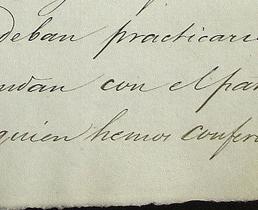 deban practicar
ndan con el par
quien hemos confer